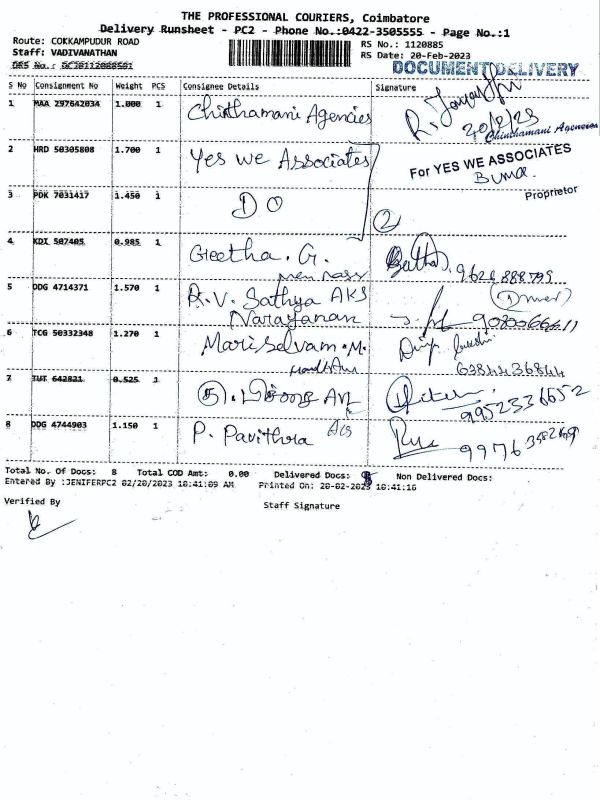 THE PROFESSIONAL COURIERS, Coimbatore
Delivery Runsheet - PC2 - Phone No.:0422-3505555 - Page No.:1
Route: COKKAMPUDUR ROAD
RS No.: 1120885
Staff: VADIVANATHAN
RS Date: 20-Feb-2023
DRS No.:
DOCUMENT DELIVERY
S No Consignment No Weight PCS Consignee Details Signature
1 MAA 297642034 1.000 1 Chinthamani Agencies
20/2/23
Chinthamani Agencies
2 HRD 50305808 1.700 1 Yes We Associates
For YES WE ASSOCIATES
Proprietor
3 PDK 7031417 1.450 1 DO
2
4 KDI 507405 0.985 1 Geetha. G.
5 DDG 4714371 1.570 1 R.V. Sathya AKS
Narayanan
6 TCG 50332348 1.270 1 Mariselvam.M.
63844 36844
7 TUT 642821 0.525 1
9952336652
8 DDG 4744903 1.150 1 P. Pavithra
Total No. Of Docs: 8 Total COD Amt: 0.00 Delivered Docs: 8 Non Delivered Docs:
Entered By :JENIFERPC2 02/20/2023 10:41:09 AM Printed On: 20-02-2023 10:41:16
Verified By
Staff Signature